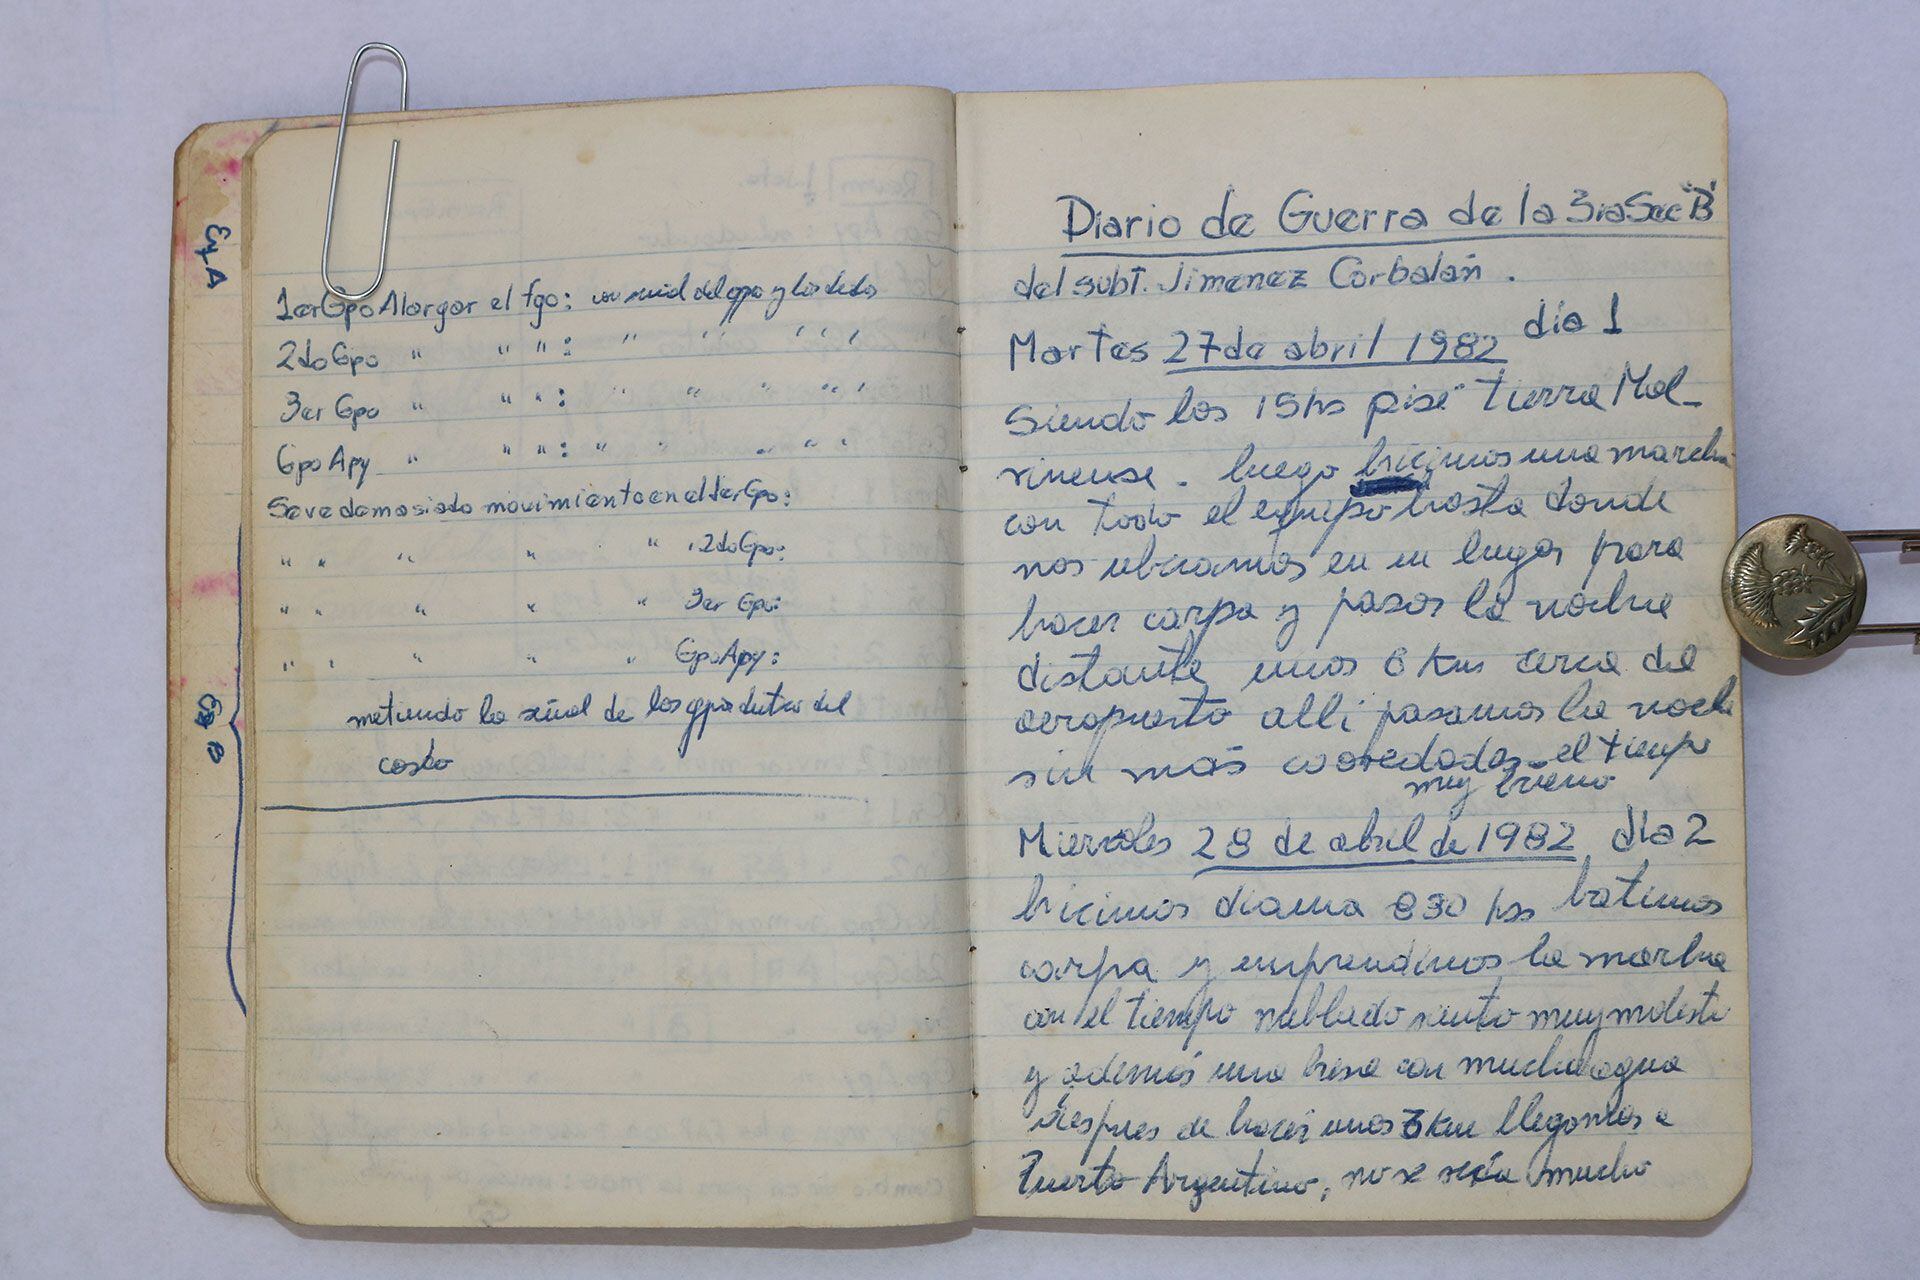 Eq. A
1erGpo Alargar el fgo: con señal del gpo y los dedos
2do Gpo " " " : " " " " "
3er Gpo " " " : " " " " "
Gpo Apy " " " : " " " " "
Se ve demasiado movimiento en el 1er Gpo:
" " " " " 2do Gpo:
" " " " " 3er Gpo:
" " " " " Gpo Apy:
metiendo la señal de los gpo dentro del
casco
Diario de Guerra de la 3ra Sec "B"
del subt. Jimenez Corbalán.
Martes 27 de abril 1982 día 1
Siendo las 15hs pisé tierra Mal-
vinense. luego hicimos una marcha
con todo el equipo hasta donde
nos ubicamos en un lugar para
hacer carpa y pasar la noche
distante unos 6 Km cerca del
aeropuerto alli pasamos la noche
sin más el tiempo
muy bueno
Miercoles 28 de abril de 1982 día 2
hicimos diana 830 hs batimos
carpa y emprendimos la marcha
con el tiempo nublado viento muy molesto
y además una con mucha agua
despues de hacer unos 3 Km llegamos a
Puerto Argentino, no se mucho